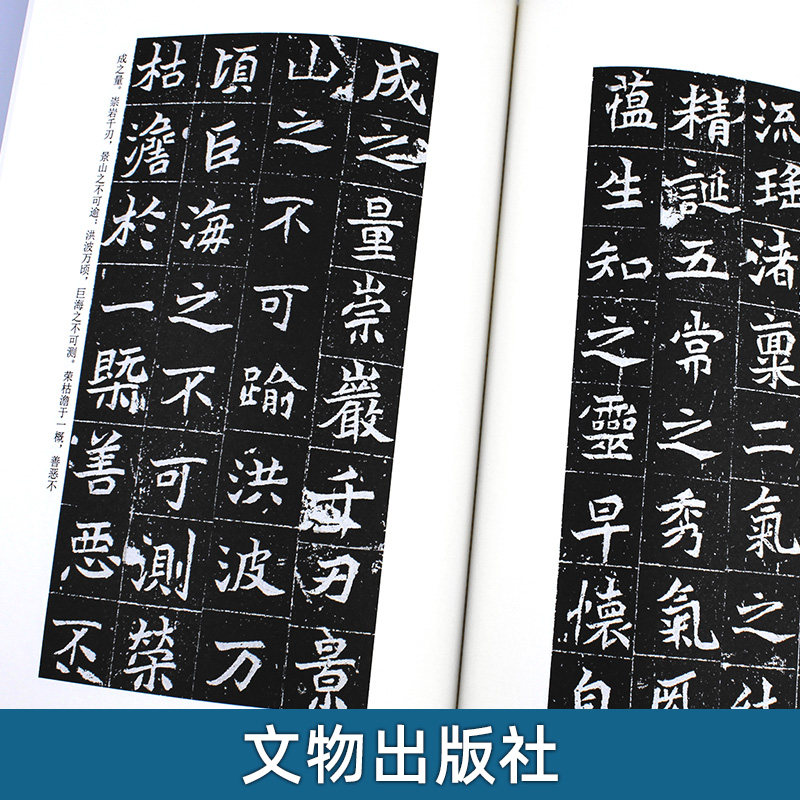 流瑤渚稟二氣之
精誕五常之秀氣
蘊生知之靈早懷自
成之量崇巖千刃景
山之不可踰洪波万
頃巨海之不可測榮
枯澹於一槩善惡不
成之量。崇岩千刃，景山之不可逾；洪波万顷，巨海之不可测。荣枯澹于一概，善恶不
文物出版社